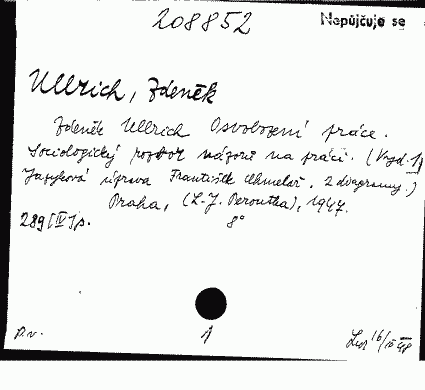 208852
Nepůjčuje se
Ullrich, Zdeněk
Zdeněk Ullrich Osvobození práce.
Sociologický rozbor názorů na práci. (Vyd. 1)
Jazyková úprava František Chmelař, 2 diagramy.)
Praha, (L.-J. Peroutka), 1947.
289 [IV] s. 8°
p.v. 1 16/IX 48